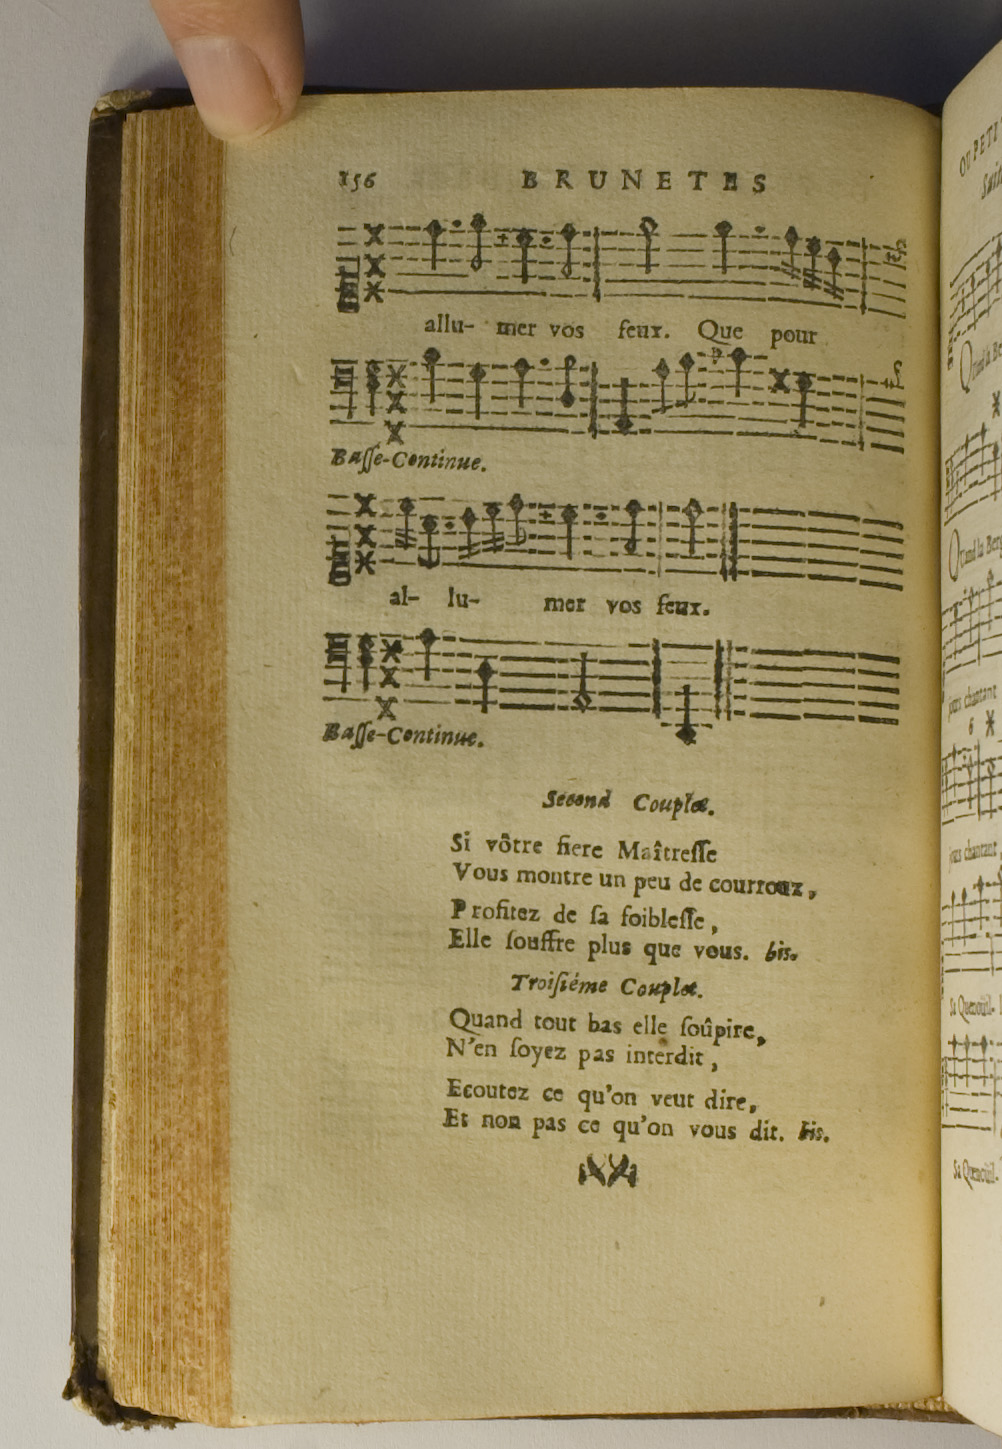 156 BRUNETES
allu- mer vos feux. Que pour
Baſſe-Continue.
al- lu- mer vos feux.
Baſſe-Continue.
Second Couplet.
Si vôtre fiere Maîtreſſe
Vous montre un peu de courroux,
Profitez de ſa foibleſſe,
Elle ſouffre plus que vous. bis.
Troiſiéme Couplet.
Quand tout bas elle ſoûpire,
N'en ſoyez pas interdit,
Ecoutez ce qu'on veut dire,
Et non pas ce qu'on vous dit. bis.
OU PETI
jours chantant
6
jous chantant,